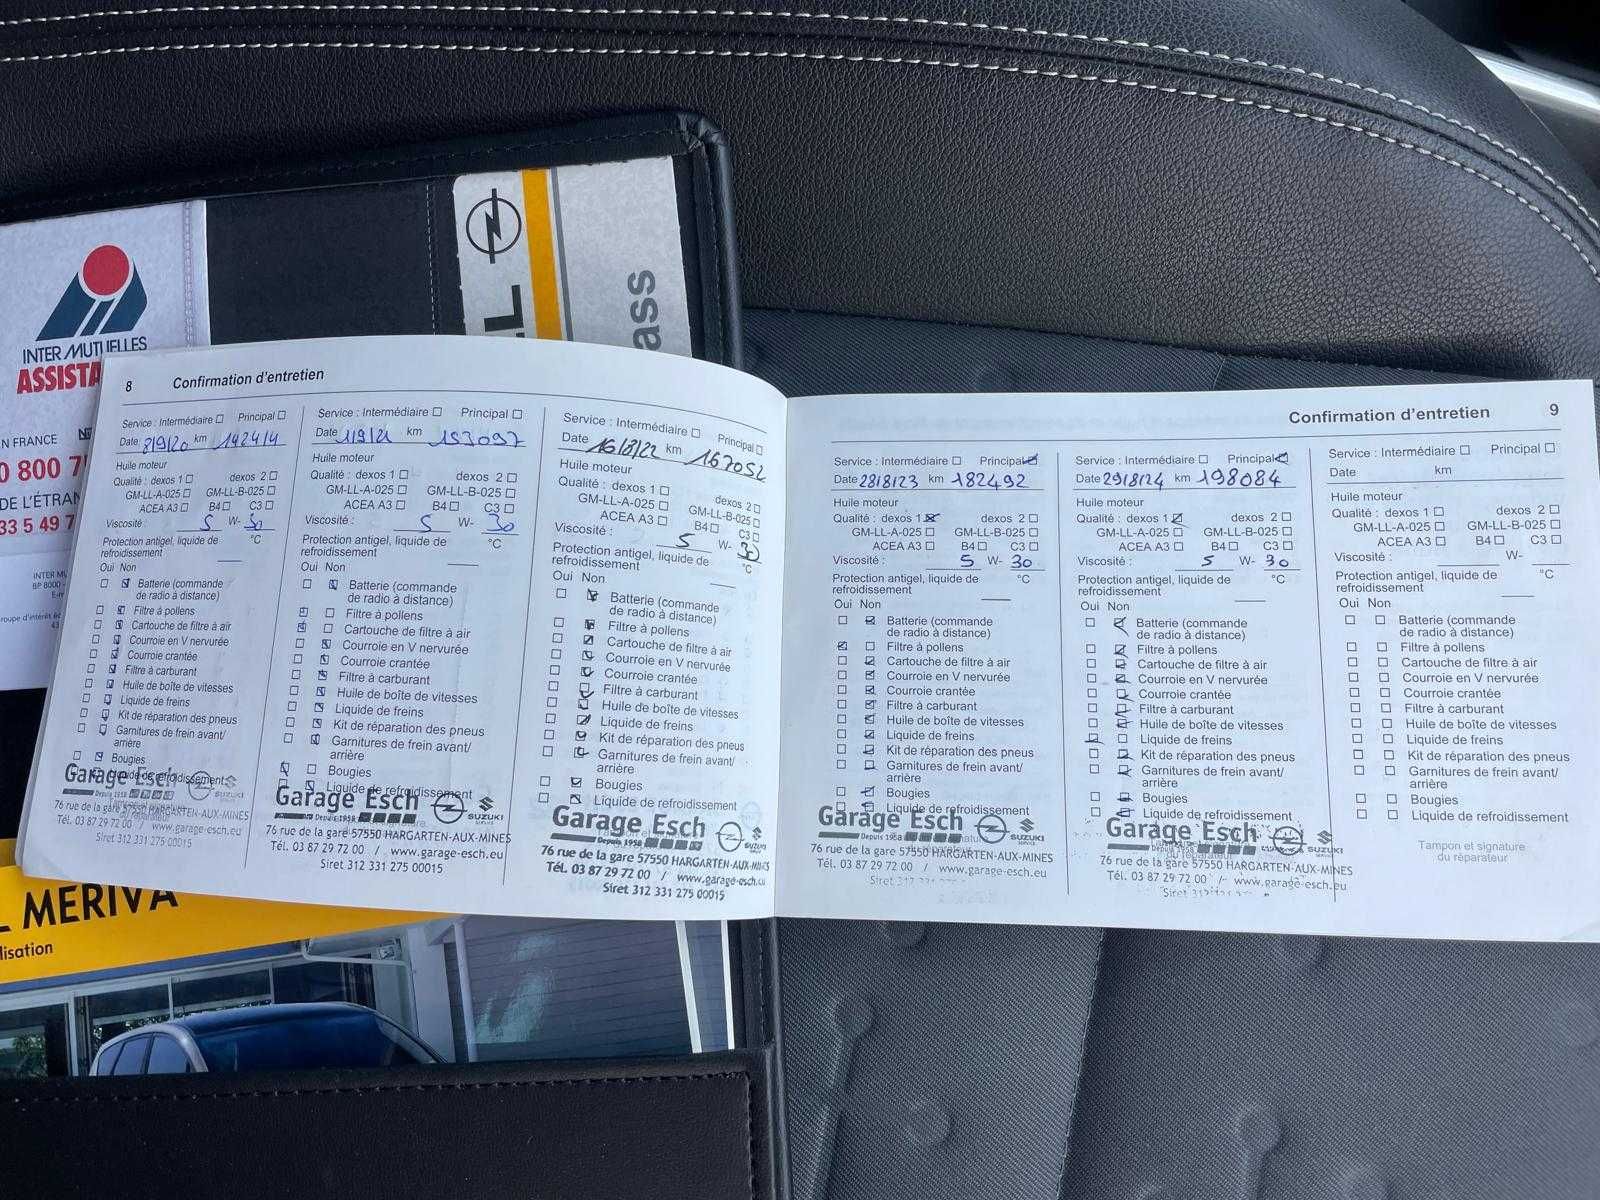 INTER MUTUELLES
ASSISTA
N FRANCE
0 800 7
DE L'ÉTRAN
33 5 49 7
INTER MU
BP 8000 -
ass
8 Confirmation d'entretien
Service : Intermédiaire ☐ Principal ☐
Date 8/9/20 km 142414
Huile moteur
Qualité : dexos 1 ☐ dexos 2 ☐
GM-LL-A-025 ☐ GM-LL-B-025 ☐
ACEA A3 ☐ B4 ☐ C3 ☐
Viscosité : 5 W- 30
Protection antigel, liquide de
refroidissement °C
Oui Non
Batterie (commande
de radio à distance)
Filtre à pollens
Cartouche de filtre à air
Courroie en V nervurée
Courroie crantée
Filtre à carburant
Huile de boîte de vitesses
Liquide de freins
Kit de réparation des pneus
Garnitures de frein avant/
arrière
Bougies
Liquide de refroidissement
Garage Esch
Depuis 1958
SUZUKI
76 rue de la gare 57550 HARGARTEN-AUX-MINES
Tél. 03 87 29 72 00 / www.garage-esch.eu
Siret 312 331 275 00015
Service : Intermédiaire ☐ Principal ☐
Date 1/9/21 km 153097
Huile moteur
Qualité : dexos 1 ☐ dexos 2 ☐
GM-LL-A-025 ☐ GM-LL-B-025 ☐
ACEA A3 ☐ B4 ☐ C3 ☐
Viscosité : 5 W- 30
Protection antigel, liquide de
refroidissement °C
Oui Non
Batterie (commande
de radio à distance)
Filtre à pollens
Cartouche de filtre à air
Courroie en V nervurée
Courroie crantée
Filtre à carburant
Huile de boîte de vitesses
Liquide de freins
Kit de réparation des pneus
Garnitures de frein avant/
arrière
Bougies
Liquide de refroidissement
Garage Esch
Depuis 1958
SUZUKI
76 rue de la gare 57550 HARGARTEN-AUX-MINES
Tél. 03 87 29 72 00 / www.garage-esch.eu
Siret 312 331 275 00015
Service : Intermédiaire ☐ Principal ☐
Date 16/8/22 km 167052
Huile moteur
Qualité : dexos 1 ☐ dexos 2 ☐
GM-LL-A-025 ☐ GM-LL-B-025 ☐
ACEA A3 ☐ B4 ☐ C3 ☐
Viscosité : 5 W- 30
Protection antigel, liquide de
refroidissement °C
Oui Non
Batterie (commande
de radio à distance)
Filtre à pollens
Cartouche de filtre à air
Courroie en V nervurée
Courroie crantée
Filtre à carburant
Huile de boîte de vitesses
Liquide de freins
Kit de réparation des pneus
Garnitures de frein avant/
arrière
Bougies
Liquide de refroidissement
Garage Esch
Depuis 1958
SUZUKI
76 rue de la gare 57550 HARGARTEN-AUX-MINES
Tél. 03 87 29 72 00 / www.garage-esch.eu
Siret 312 331 275 00015
Confirmation d'entretien 9
Service : Intermédiaire ☐ Principal ☑
Date 28/8/23 km 182492
Huile moteur
Qualité : dexos 1 ☒ dexos 2 ☐
GM-LL-A-025 ☐ GM-LL-B-025 ☐
ACEA A3 ☐ B4 ☐ C3 ☐
Viscosité : 5 W- 30
Protection antigel, liquide de
refroidissement °C
Oui Non
Batterie (commande
de radio à distance)
Filtre à pollens
Cartouche de filtre à air
Courroie en V nervurée
Courroie crantée
Filtre à carburant
Huile de boîte de vitesses
Liquide de freins
Kit de réparation des pneus
Garnitures de frein avant/
arrière
Bougies
Liquide de refroidissement
Garage Esch
Depuis 1958
SUZUKI
76 rue de la gare 57550 HARGARTEN-AUX-MINES
Tél. 03 87 29 72 00 / www.garage-esch.eu
Siret 312 331 275
Service : Intermédiaire ☐ Principal ☑
Date 29/8/24 km 198084
Huile moteur
Qualité : dexos 1 ☑ dexos 2 ☐
GM-LL-A-025 ☐ GM-LL-B-025 ☐
ACEA A3 ☐ B4 ☐ C3 ☐
Viscosité : 5 W- 30
Protection antigel, liquide de
refroidissement °C
Oui Non
Batterie (commande
de radio à distance)
Filtre à pollens
Cartouche de filtre à air
Courroie en V nervurée
Courroie crantée
Filtre à carburant
Huile de boîte de vitesses
Liquide de freins
Kit de réparation des pneus
Garnitures de frein avant/
arrière
Bougies
Liquide de refroidissement
Garage Esch
Depuis 1958
SUZUKI
76 rue de la gare 57550 HARGARTEN-AUX-MINES
Tél. 03 87 29 72 00 / www.garage-esch.eu
Siret
Service : Intermédiaire ☐ Principal ☐
Date km
Huile moteur
Qualité : dexos 1 ☐ dexos 2 ☐
GM-LL-A-025 ☐ GM-LL-B-025 ☐
ACEA A3 ☐ B4 ☐ C3 ☐
Viscosité : W-
Protection antigel, liquide de
refroidissement °C
Oui Non
Batterie (commande
de radio à distance)
Filtre à pollens
Cartouche de filtre à air
Courroie en V nervurée
Courroie crantée
Filtre à carburant
Huile de boîte de vitesses
Liquide de freins
Kit de réparation des pneus
Garnitures de frein avant/
arrière
Bougies
Liquide de refroidissement
Tampon et signature
du réparateur
L MERIVA
lisation